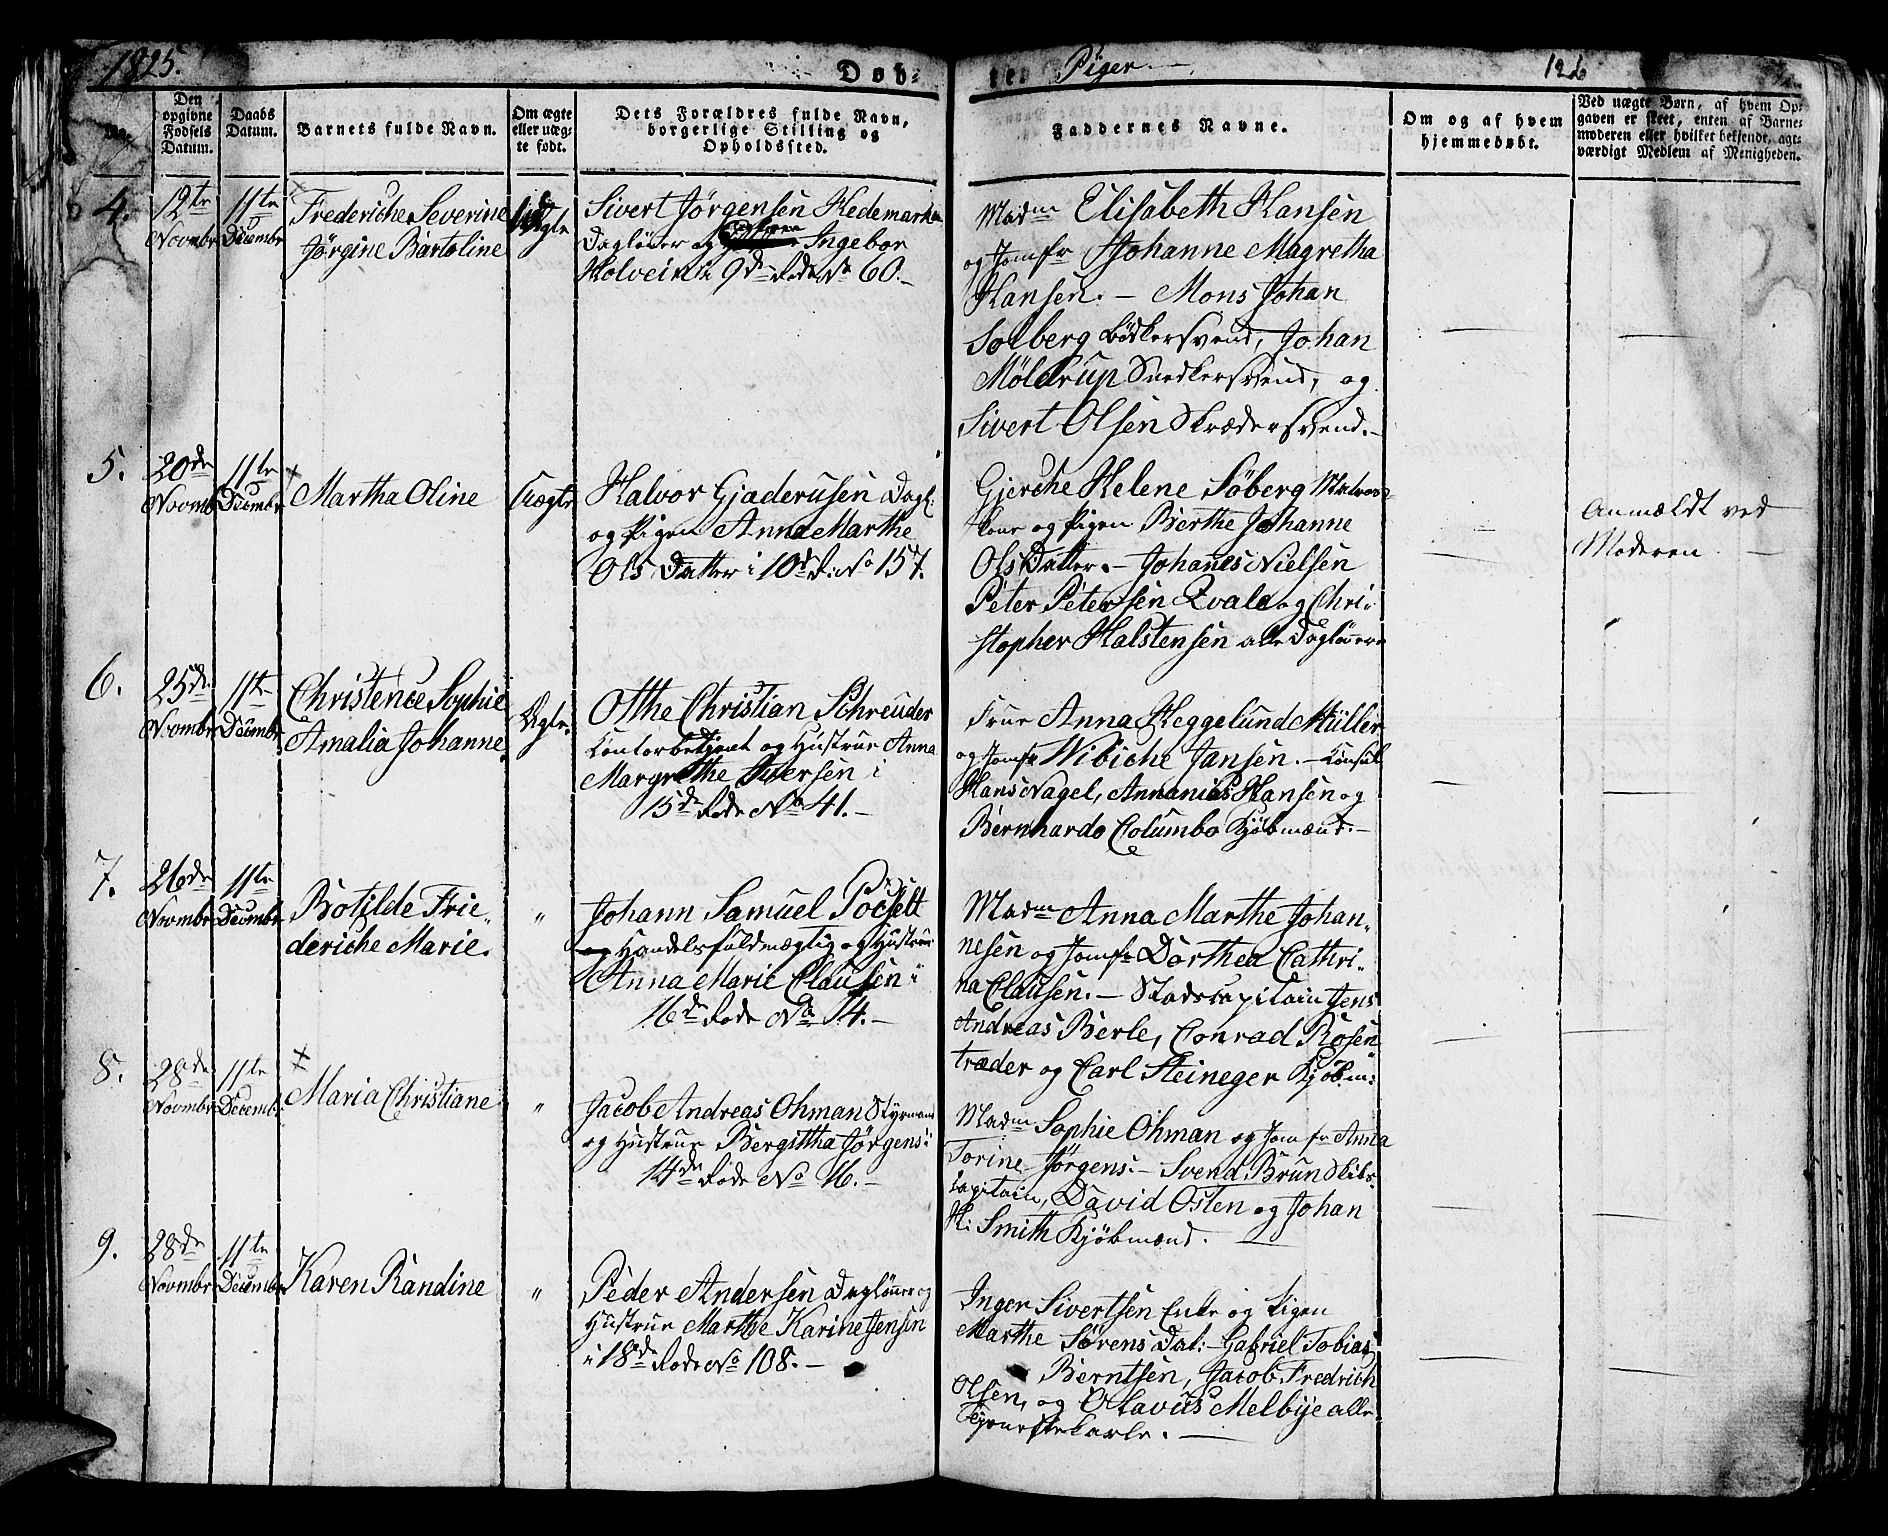 1825.
Døb-
te
Piger.
126
Den
opgivne
Fødsels
Datum.
Daabs
Datum.
Barnets fulde Navn.
Om ægte
eller uæg-
te født.
Dets Forældres fulde Navn,
borgerlige Stilling og
Opholdssted.
Faddernes Navne.
Om og af hvem
hjemmedøbt.
Ved uægte Børn, af hvem Op-
gaven er skeet, enten af Barne-
moderen eller hvilket bekjendt, agt-
værdigt Medlem af Menigheden.
4.
12te
Novmbr
11te
Decembr
Frederiche Severine
Jørgine Bartoline
Sivert Jørgensen Hedemarken
Dagløner og Ingebor
Holvein i 9de Rode No 60.
Madm Elisabeth Hansen
og Jomfr Johanne Magretha
Hansen. — Mons Johan
Solberg Bødkersvend, Johan
Møldrup Snedkersvend, og
Sivert Olsen Skrædersvend.
5.
20de
Novmb
11te
Decmbr
Martha Oline
Uægte
Halvor Gjaderusen Dagl.
og Pigen Anna Marthe
Ols Datter i 10de R. No 157.
Gjerche Helene Søberg Matros-
kone og Pigen Berthe Johanne
Ols Datter. — Johanes Nielsen
Peter Petersen Qvale og Chri-
stopher Halstensen alle Dagløner
Anmældt ved
Moderen
6.
25de
Novmbr
11te
Decmbr
Christence Sophie
Amalia Johanne
Ægte
Otthe Christian Schreuder
Contorbetjent og Hustrue Anna
Margrethe Iversen i
15de Rode No 41.
Frue Anna Heggelund Müller
og Jomfr Wibiche Jansen. — Consul
Hans Nagel, Annanias Hansen og
Bernhardo Columbo Kjøbmænd.
7.
26de
Novmbr
11te
Decmbr
Botilde Frie-
deriche Marie.
"
Johann Samuel Pöchelt
Handelsfuldmægtig og Hustrue
Anna Marie Clausen i
16de Rode No 14.
Madm Anna Marthe Johan-
nesen og Jomfr Dorthea Cathri-
na Clausen. — Stadscapitain Jens
Andreas Berle, Conrad Rosen
træder og Carl Steineger Kjøbm:
8.
28de
Novmbr
11te
Decemb.
Maria Christiane
"
Jacob Andreas Ohman Styrmand
og Hustrue Bergitha Jørgens i
14de Rode No 16.
Madm Sophie Ohman og Jomfr Anna
Torine Jørgens: — Svend Brun Skibs-
capitain, David Osten og Johan
H: Smith Kjøbmænd.
9.
28de
Novmbr
11te
Decmbr
Karen Randine
"
Peder Andersen Dagløner og
Hustrue Marthe Karine Jensen
i 18de Rode No 108.
Inger Sivertsen Enke og Pigen
Marthe Sørens Dat: — Gabriel Tobias
Berntsen, Jacob Fredrich
Olsen, og Octavius Melbije alle
Tjenestekarle.